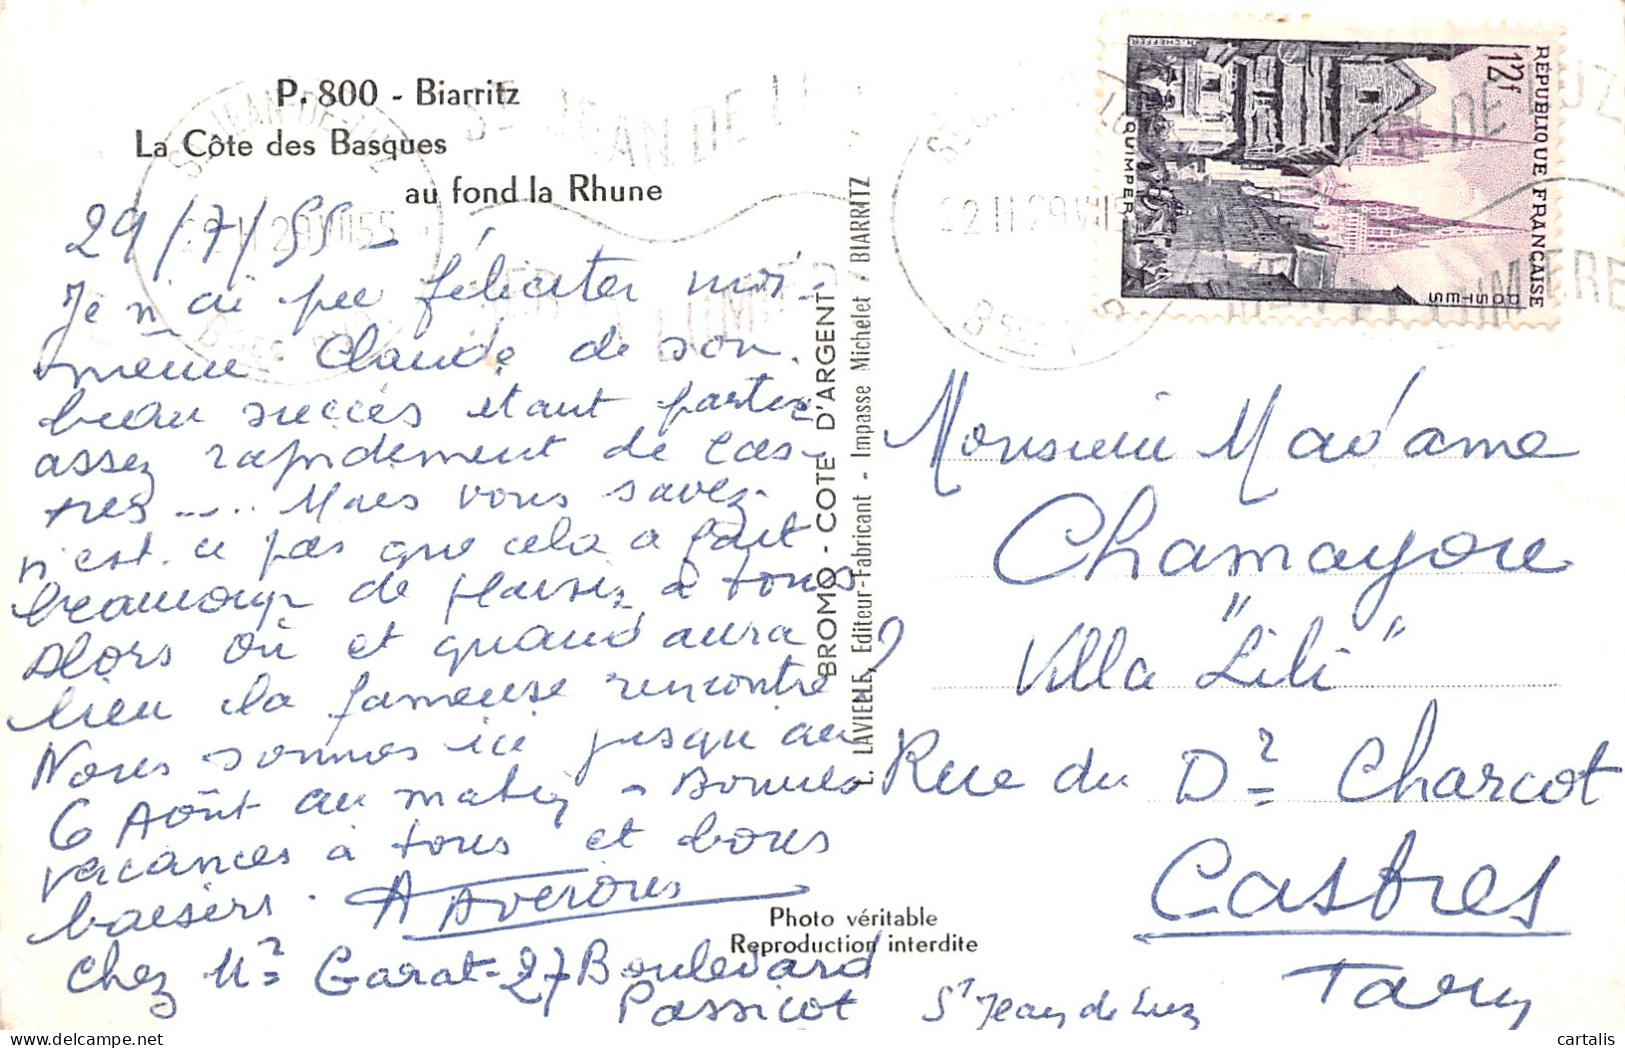 P. 800 - Biarritz
La Côte des Basques
au fond la Rhune
29/7/55 -
Je n'ai pu féliciter moi-
même Claude de son
beau succès étant partie
assez rapidement de Cas-
tres ..... Mais vous savez
n'est-ce pas que cela a fait
beaucoup de plaisir à tous
Alors où et quand aura
lieu la fameuse rencontre ?
Nous sommes ici jusqu'au
6 Août au matin - Bonnes
vacances à tous et bons
baisers. A Averous
chez Mr Garat - 27 Boulevard
Passicot St Jean de Luz
BROMO - COTE D'ARGENT
L. LAVIELLE, Editeur-Fabricant - Impasse Michelet / BIARRITZ
Photo véritable
Reproduction interdite
REPUBLIQUE FRANÇAISE
12f
POSTES
QUIMPER
H.CHEFFER
ST JEAN DE LUZ
22 H 29 VII 55
Bses P.
MER ET LUMIERE
Monsieur Madame
Chamayou
Villa "Lili"
Rue du Dr Charcot
Castres
Tarn
cartalis - Delcampe.net